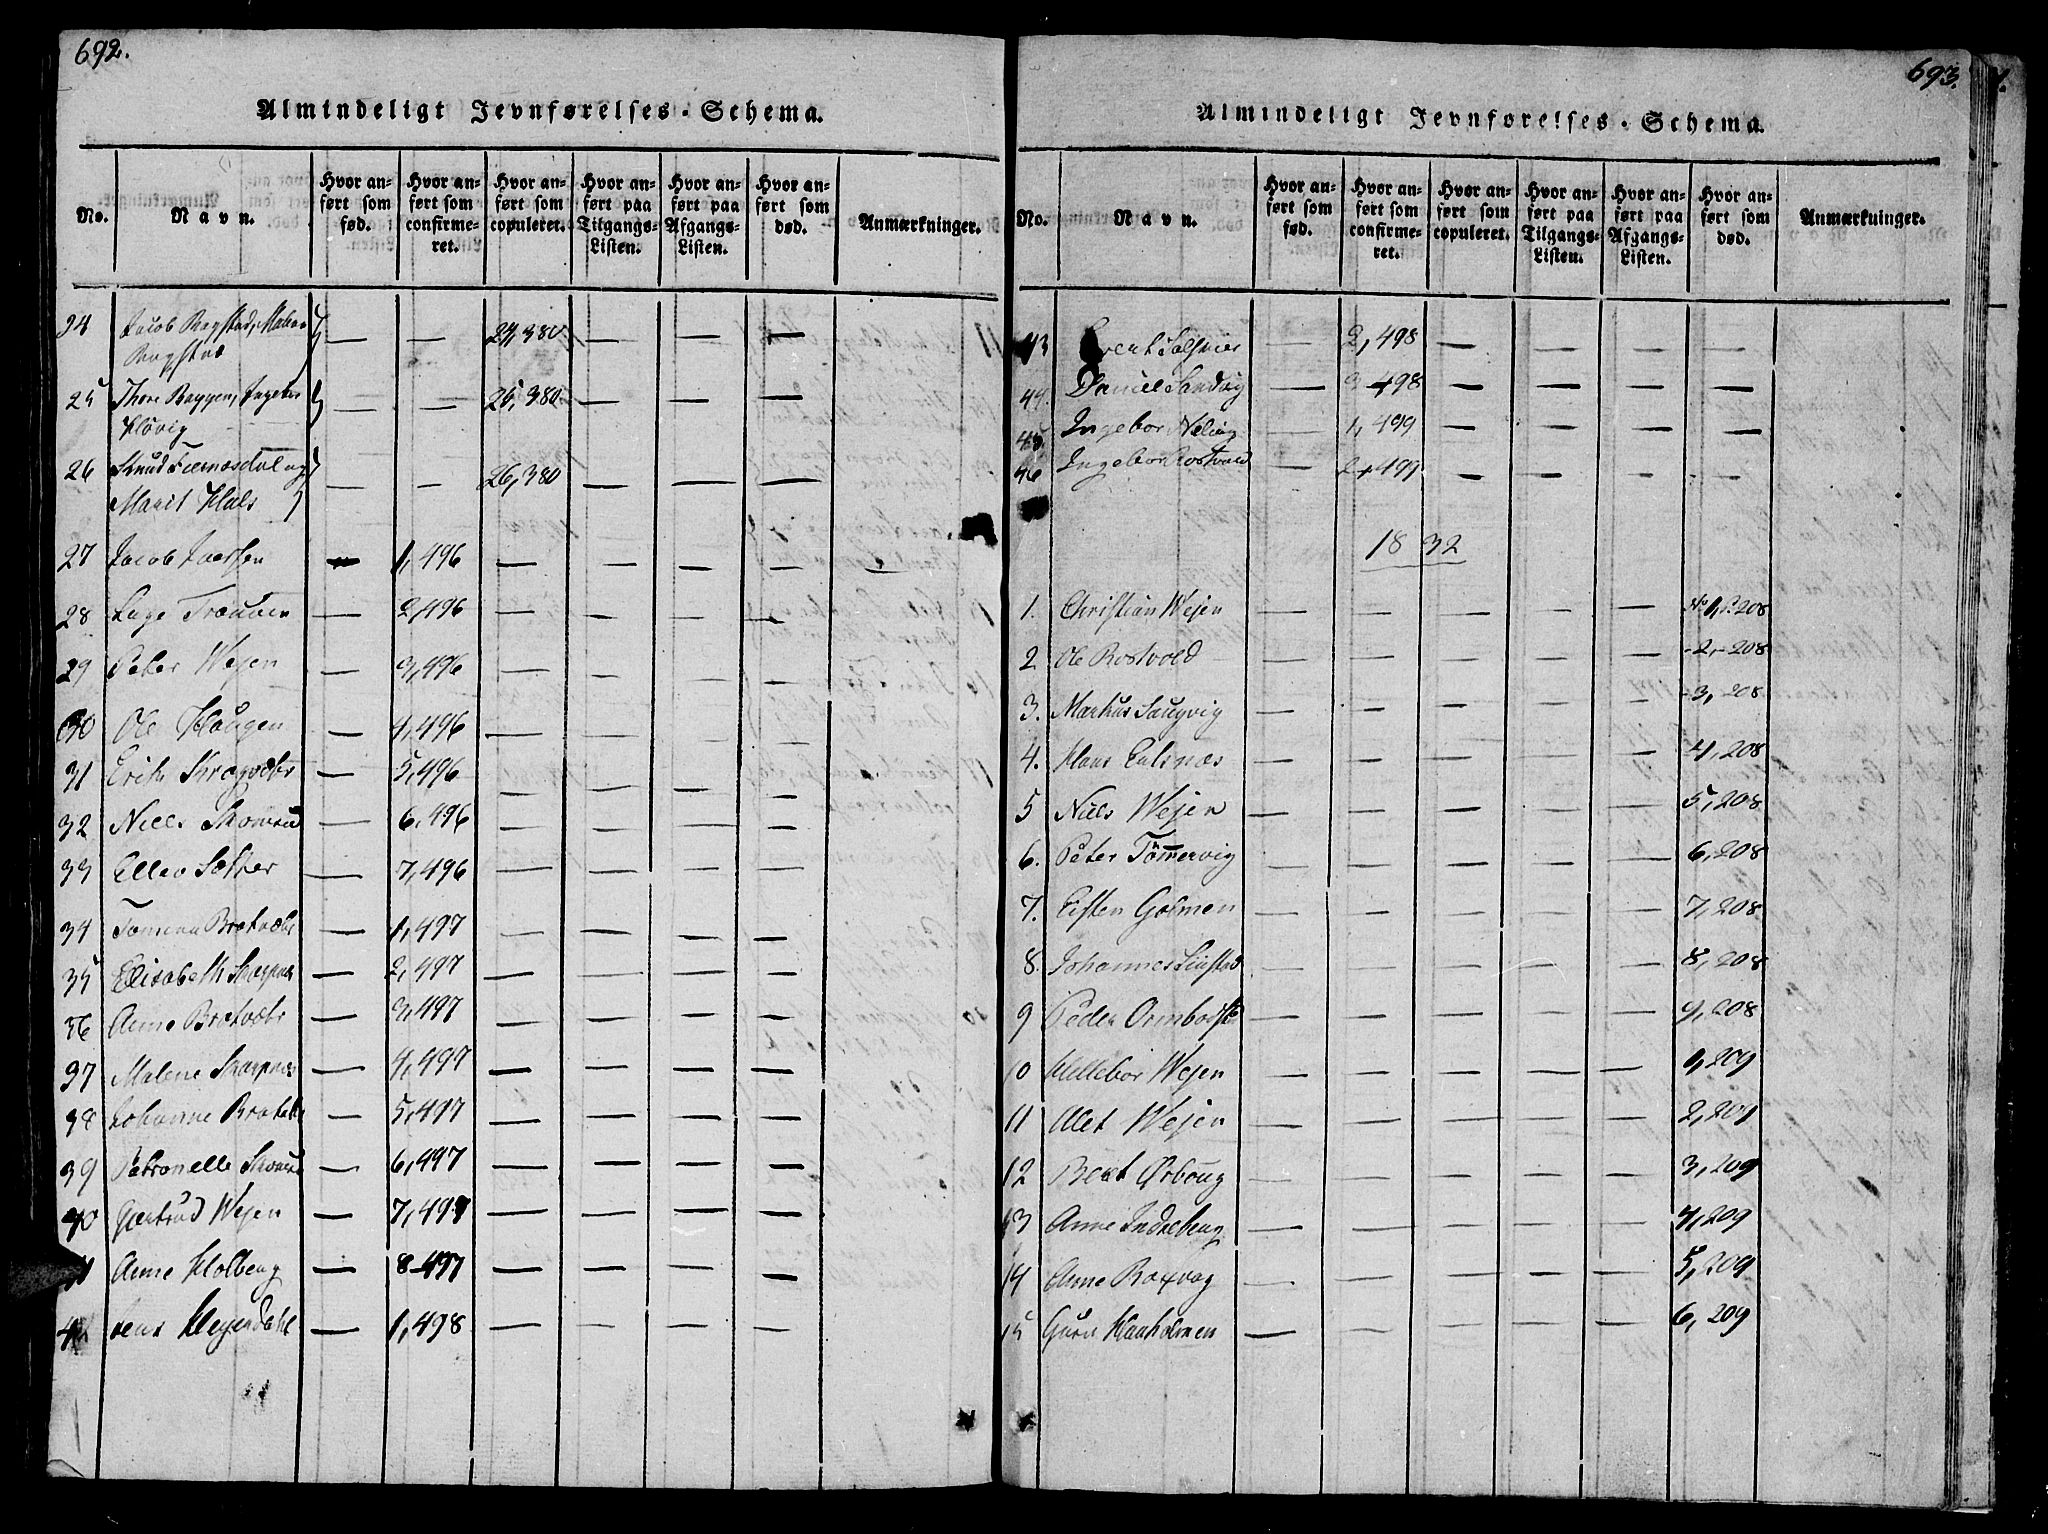 692.
Almindeligt Jevnførelses-Schema.
No. Navn. Hvor anført som fød. Hvor anført som confirmeret. Hvor anført som copuleret. Hvor anført paa Tilgangs-Listen. Hvor anført paa Afgangs-Listen. Hvor anført som død. Anmærkninger.
24 Jacob Bagstad, Malene — — 24,380 — — —
Bagstad
25 Thore Baggen, Ingebor — — 25,380 — — —
Høvig
26 Knud Fiernesdal og — — 26,380 — — —
Marit Hals
27 Jacob Iversen — 1,496 — — — — —
28 Lage — 2,496 — — — —
29 Peter Wejen — 3,496 — — — —
30 Ole Haugen — 4,496 — — — —
31 Erik — 5,496 — — — —
32 Niels — 6,496 — — — —
33 Ellen — 7,496 — — — —
34 — 1,497 — — — —
35 Elisabeth — 2,497 — — — —
36 Anne — 3,497 — — — —
37 Malene — 4,497 — — — —
38 Johanne — 5,497 — — — —
39 Petronelle — 6,497 — — — —
40 Gertrud Wejen — 7,497 — — — —
41 Anne Holberg — 8-497 — — — —
4 Jens Heyerdahl — 1,498 — — — —
693.
Almindeligt Jevnførelses-Schema.
No. Navn. Hvor anført som fød. Hvor anført som confirmeret. Hvor anført som copuleret. Hvor anført paa Tilgangs-Listen. Hvor anført paa Afgangs-Listen. Hvor anført som død. Anmærkninger.
43 — 2,498 — — — —
44. Daniel Sandvig — 3-498 — — — —
45 Ingebor — 1,499 — — — —
46 Ingebor Rostvold — 2-499 — — — —
1832
1. Christian Wejen — — — — — No 1, P. 208
2 Ole Rostvold — — — — — -2,-208
3. Markus Saugvig — — — — — -3,-208
4. Hans — — — — — 4,208
5 Niels Wejen — — — — — 5,208
6. Peter Tømmervig — — — — — 6,208
7. — — — — — 7,208
8. Johannes — — — — — 8,208
9 Peder — — — — — 9,208
10 Hellebor Wejen — — — — — 1,209
11 Alet Wejen — — — — — 2,209
12 — — — — — 3,209
13 Anne Indreberg — — — — — 4,209
14 Anne Roxvog — — — — — 5,209
15 Guru Haaholmen — — — — — 6,209